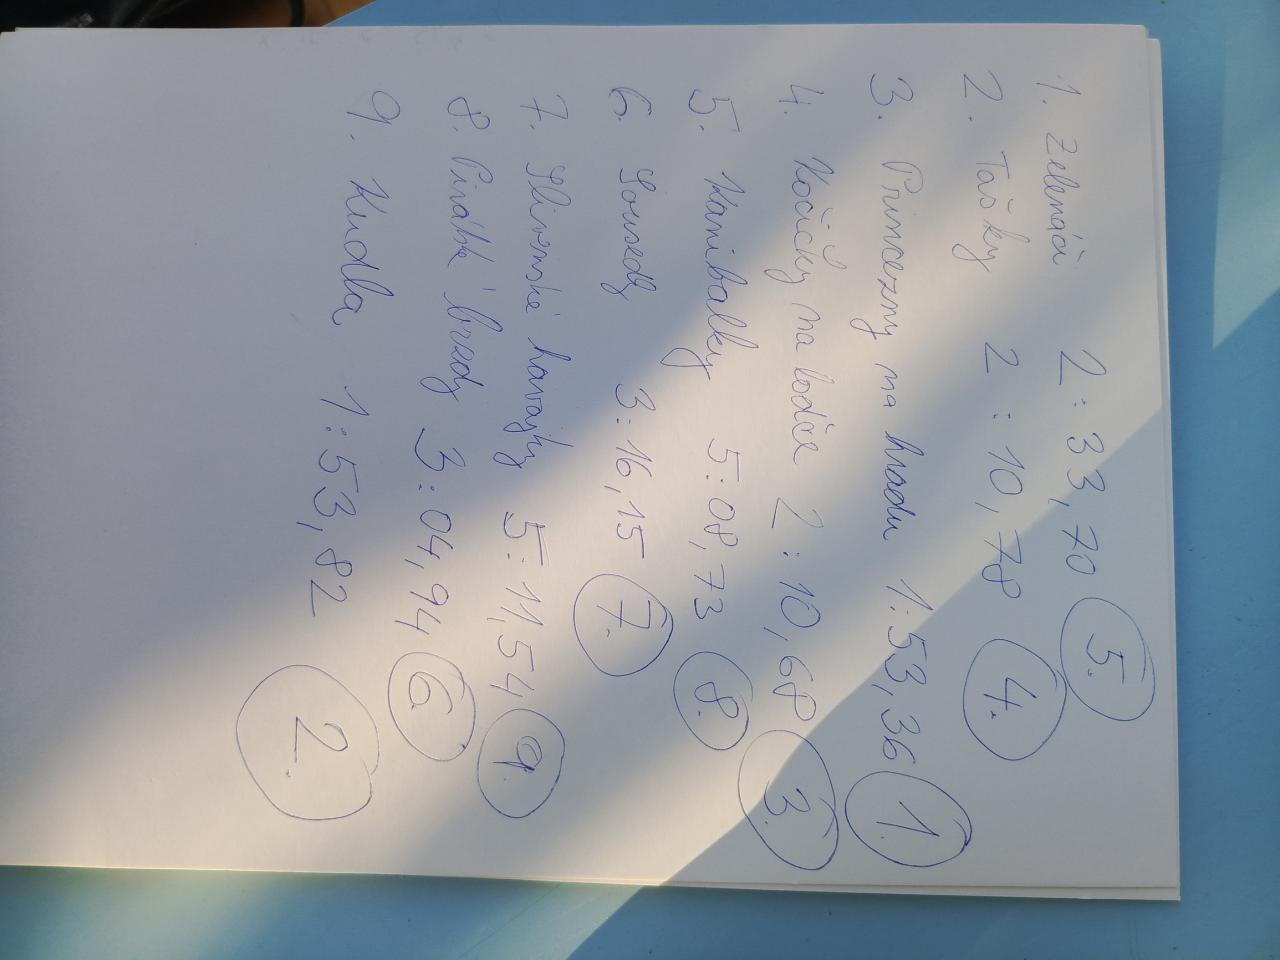 1. Zelenáči 2:33,70 5.
2. Tašky 2:10,78 4.
3. Princezny na hradu 1:53,36 1.
4. Kočičky na lodice 2:10,68 3.
5. Kanibalky 5:08,73 8.
6. Sousedy 3:16,15 7.
7. havajky 5:11,54 9.
8. brzdy 3:04,94 6.
9. Kudla 1:53,82 2.